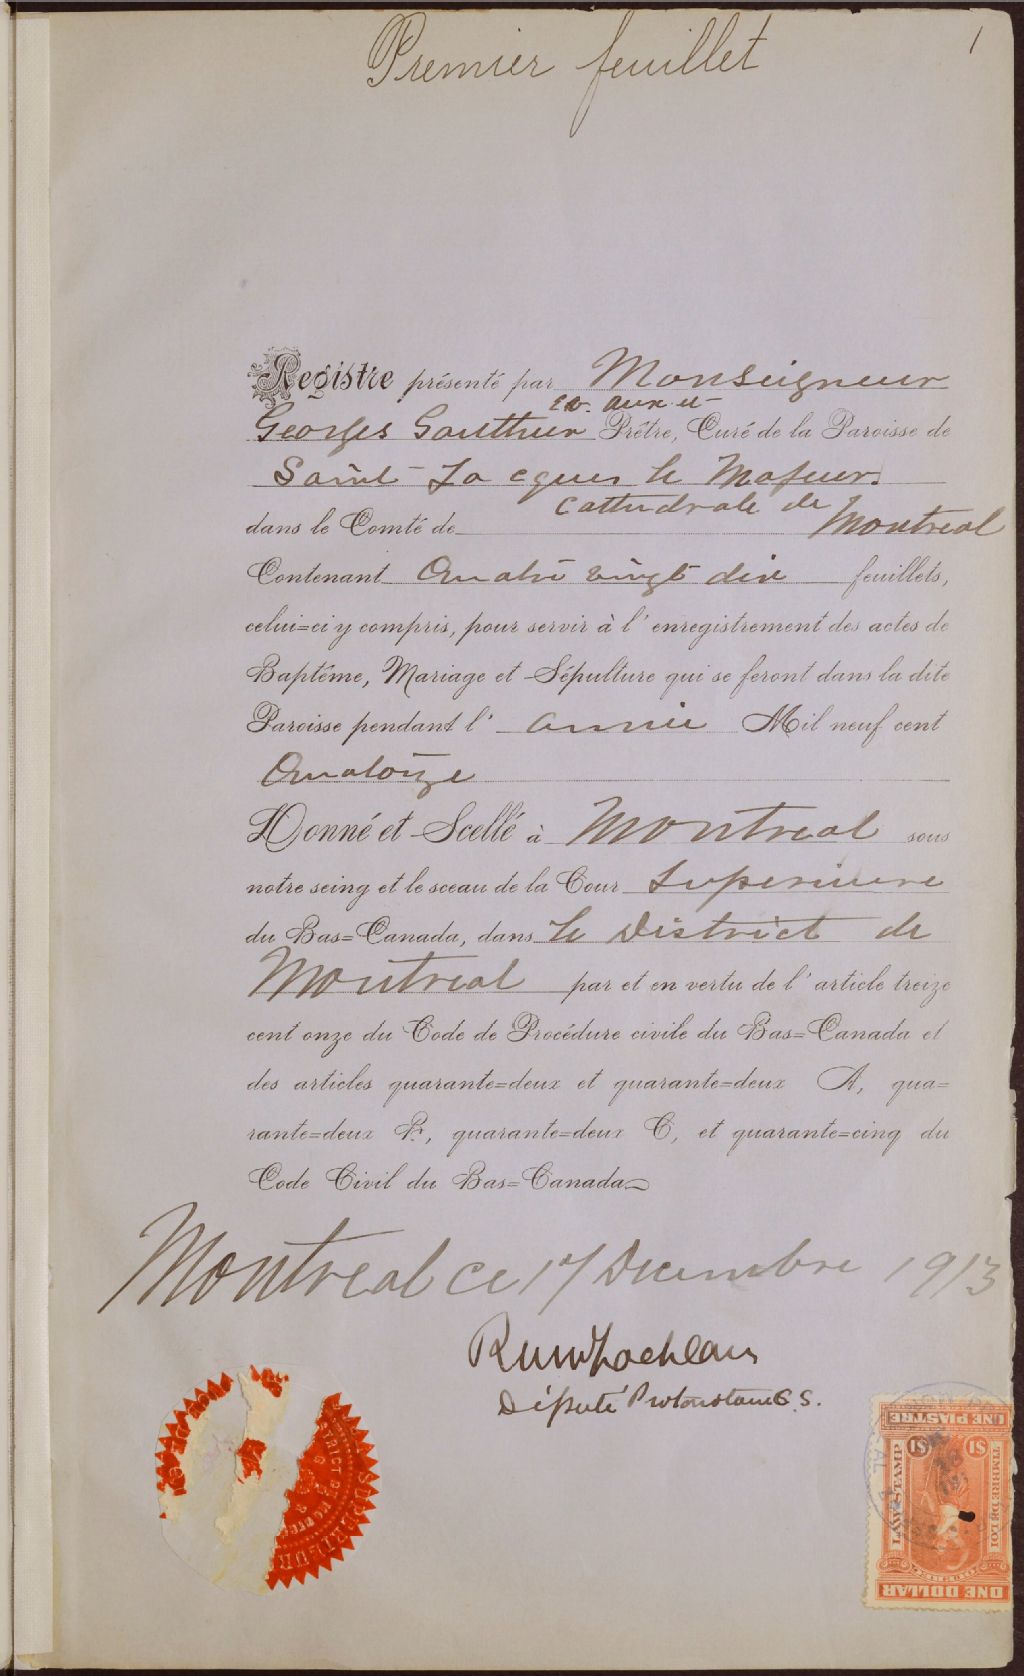 Premier feuillet
1
Registre présenté par Monseigneur
ev. aux. et
Georges Gauthier Prêtre, Curé de la Paroisse de
Saint-Jacques le Majeur
Cathédrale de
dans le Comté de Montreal
Contenant Quatre vingt dix feuillets,
celui=ci y compris, pour servir à l'enregistrement des actes de
Baptême, Mariage et Sépulture qui se feront dans la dite
Paroisse pendant l'année Mil neuf cent
Quatorze
Donné et Scellé à Montreal sous
notre seing et le sceau de la Cour Superieure
du Bas=Canada, dans le District de
Montreal par et en vertu de l'article treize
cent onze du Code de Procédure civile du Bas=Canada et
des articles quarante=deux et quarante=deux A, qua=
rante=deux B, quarante=deux C, et quarante=cinq du
Code Civil du Bas=Canada
Montreal ce 17 Decembre 1913
Député Protonotaire C.S.
SUPERIEUR
ONE PIASTRE
$1 $1
LAW STAMP
TIMBRE DE LOI
ONE DOLLAR